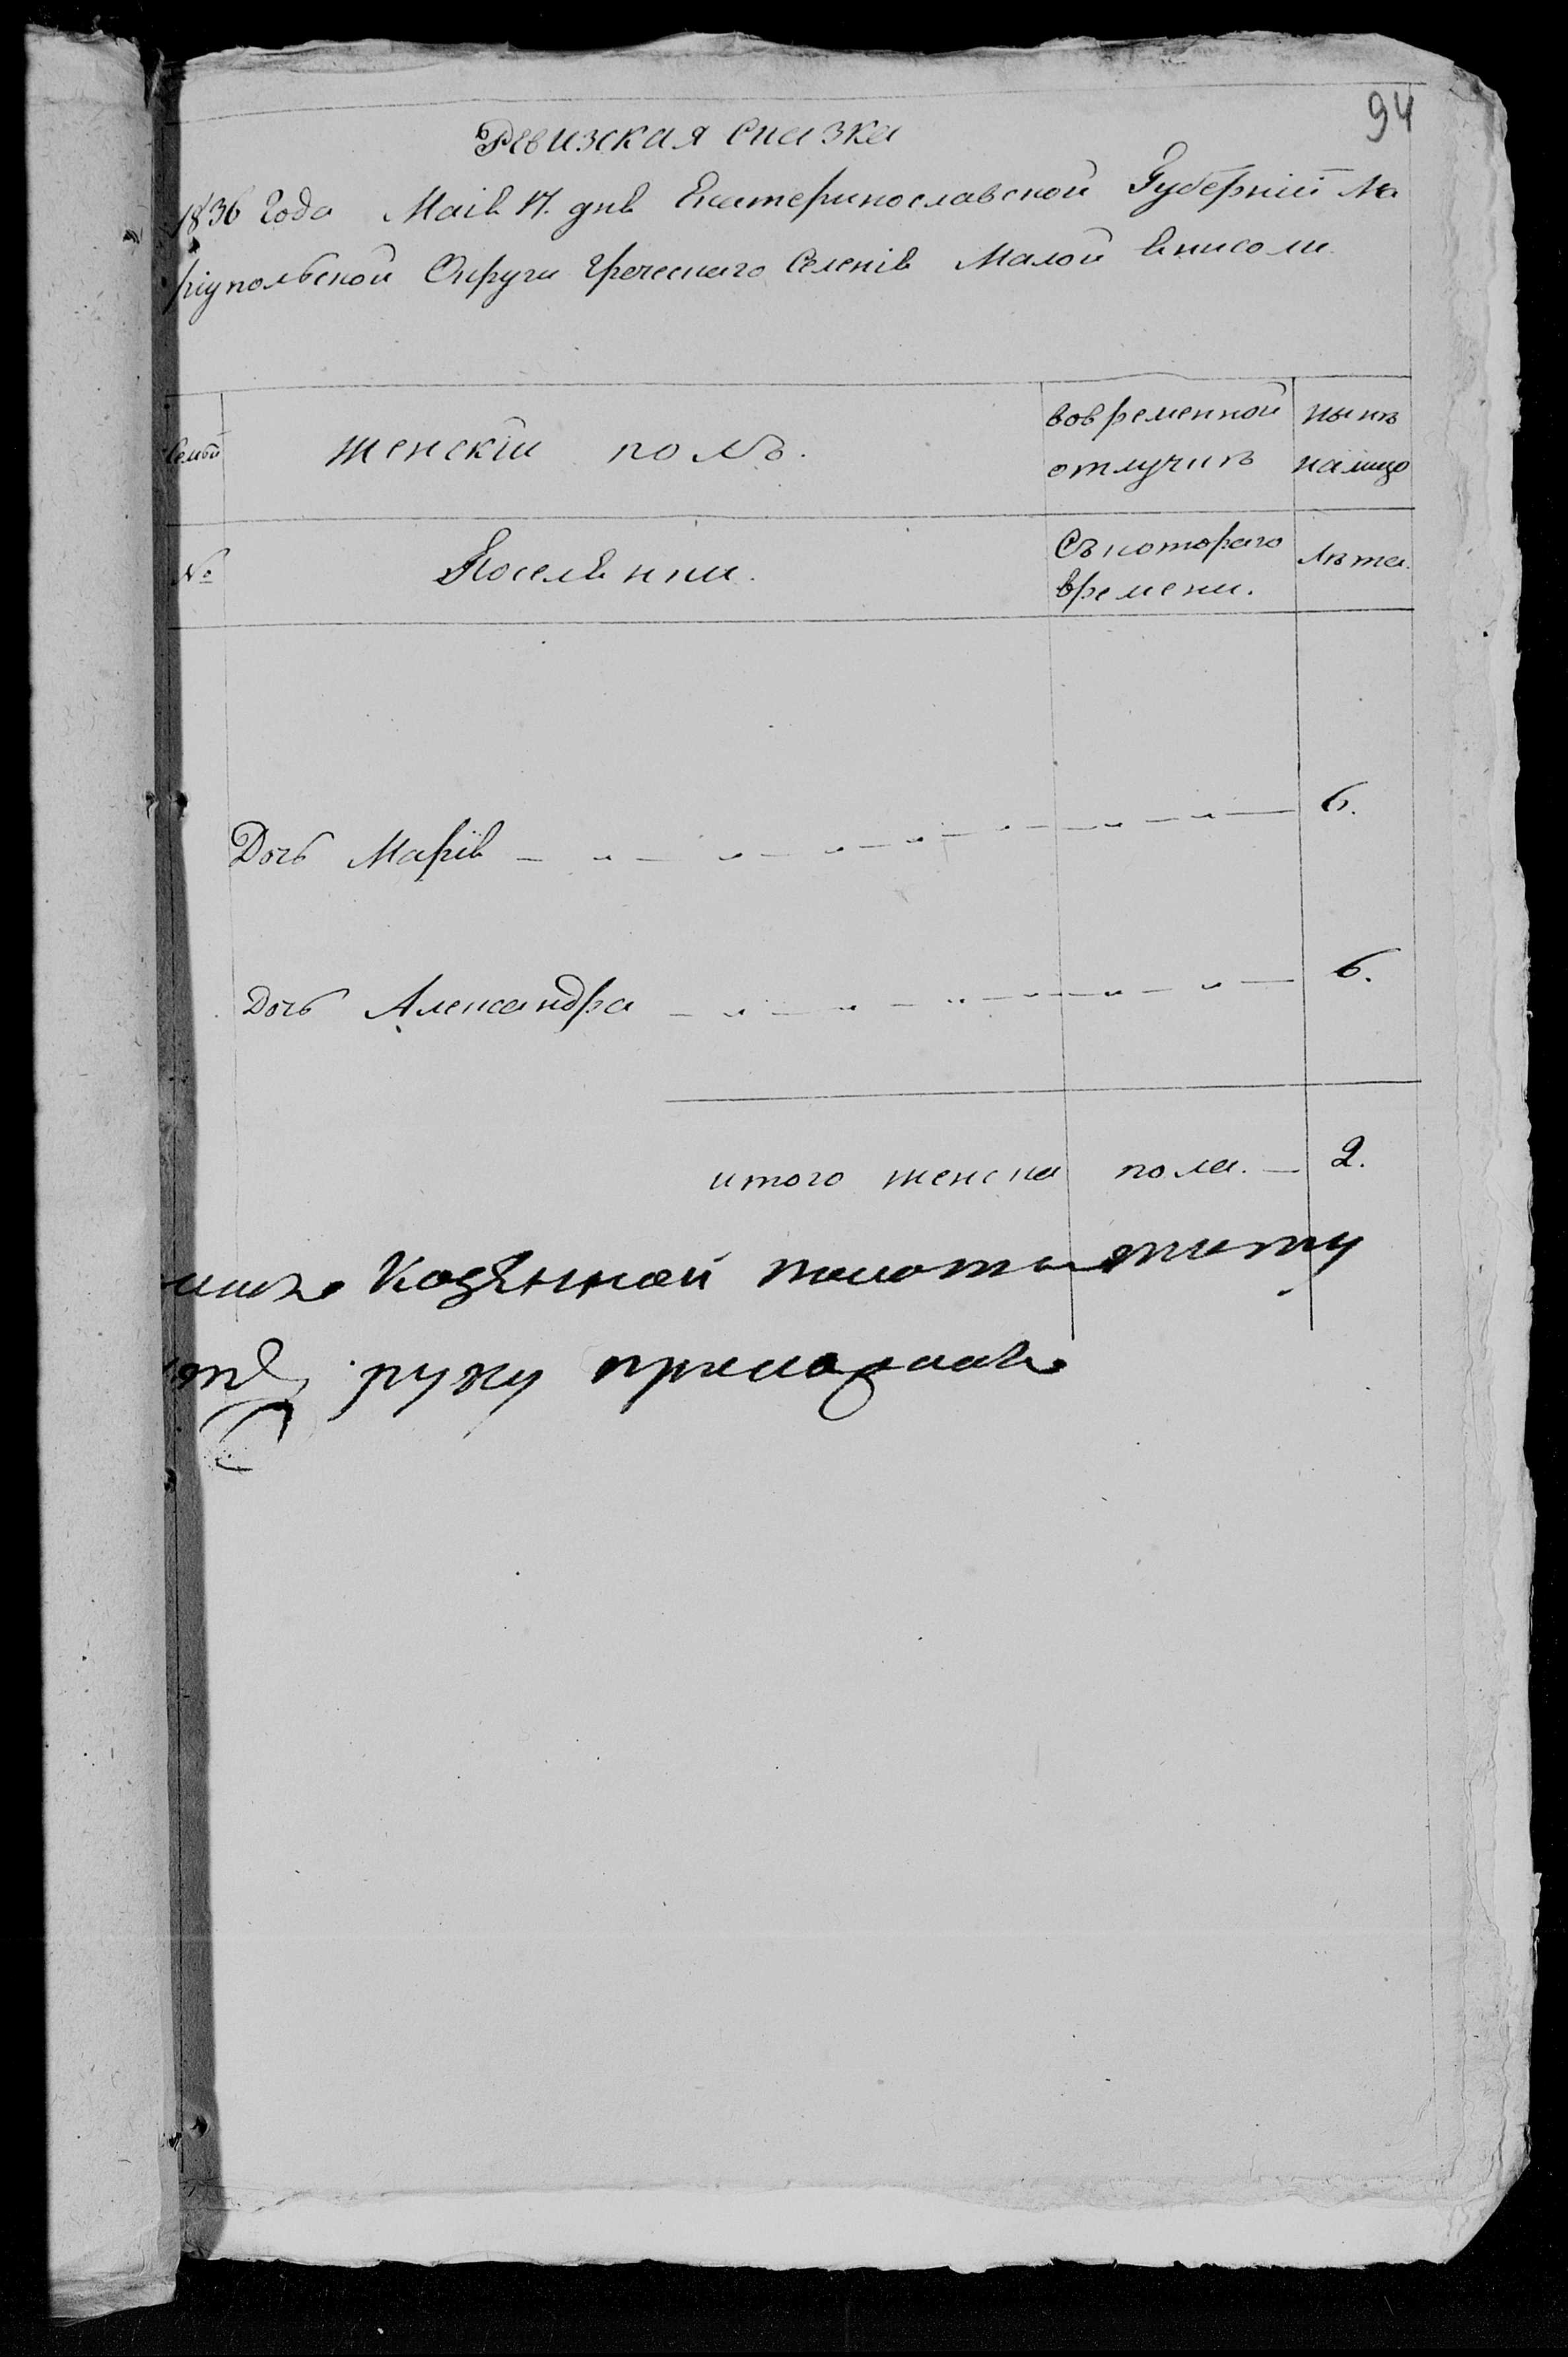 94
Ревизская сказка
1836 Года Маія 17. дня Екатеринославской Губерніи Ма
ріупольской Округи Греческаго Селенія Малой Енисоли
Семьи
женскій полъ.
вовременной отлучкѣ
нынѣ налицо
№
Поселянки.
Съ котораго времени.
Лѣта.
Дочь Марія — „ — „ — „ — „ — „ — „ — „ — 6.
Дочь Александра — „ — „ — „ — „ — „ — „ — 6.
итого женска пола. — 2.
Козенной
руку приложилъ